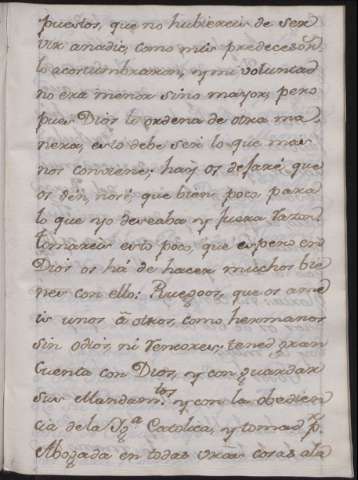 puestos, que no hubiereis de ser
vir anadie, como mis predecesor.s
lo acostumbraron, y mi voluntad
no era menor sino mayor, pero
pues Dios lo ordena de otra ma-
nera, esto debe ser lo que mas
nos conviene; hay os dejaré que
os dén, no ré que bien poco para
lo que yo deseaba y fuera razon
tomareis esto poco, que espero en
Dios os há de hacer muchos bie
nes con ello: Ruegoos, que os ame
is unos á otros, como hermanos
sin odios, ni rencores; tened gran
Cuenta con Dios, y con guardar
sus Mandam.tos y con la obedien
cia de la Yg.a Catolica, y tomad p.r
Abogada en todas vras cosas ala